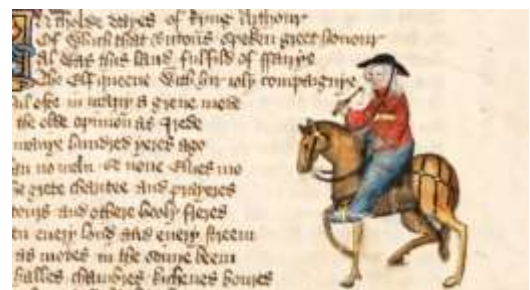 N tholde dayes of kyng Arthour
Of which that Britons speken greet honour
Al was this land fulfild of ffairye
The Elf queene with hir ioly compaignye
ul ofte in many a grene mede
the olde opinion as I rede
manye hundred yeres ago
an no man se none Elues mo
he grete charitee and prayeres
tours and othere hooly freres
en euery lond and euery streem
as motes in the sonne beem
halles chambres kichenes boures